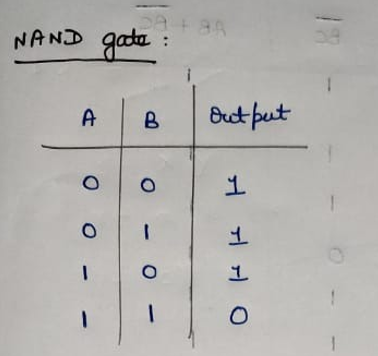 NAND gate :
A B Output
0 0 1
0 1 1
1 0 1
1 1 0